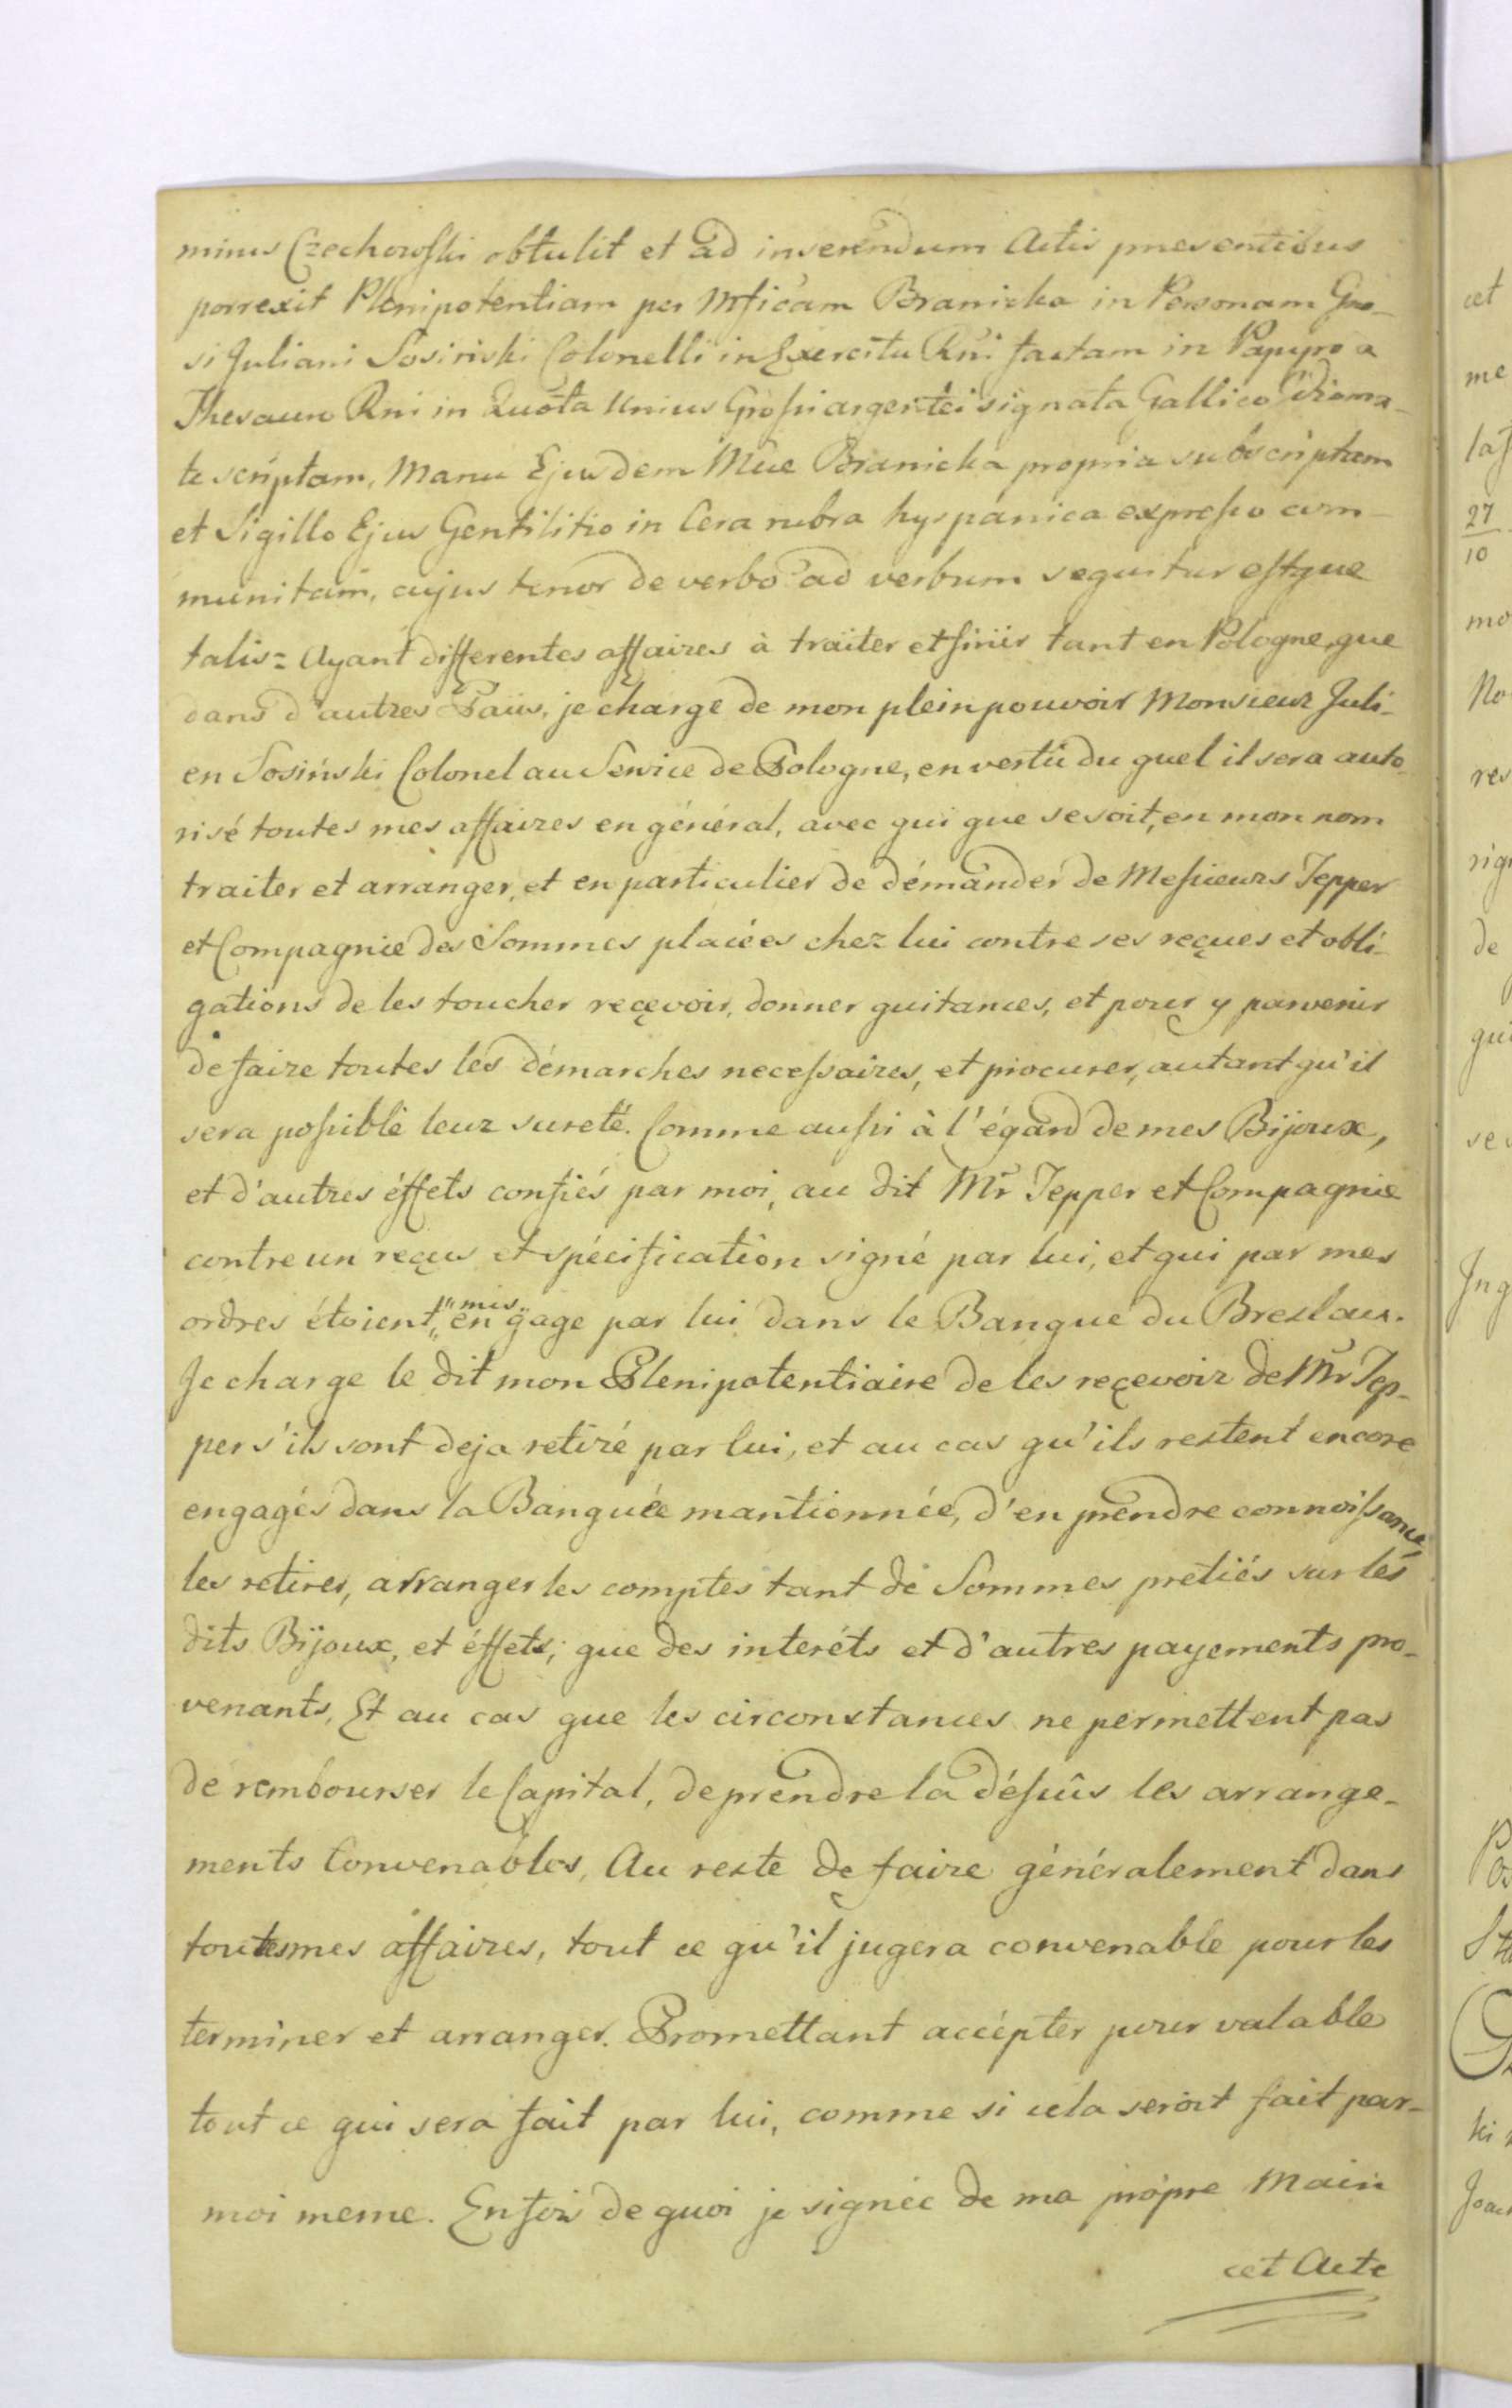 minus Czechowski obtulit et ad inserendum Actis praesentibus
porrexit Plenipotentiam per Mficam Branicka in Personam Gno-
si Juliani Sosinski Colonelli in Exercitu Rni factam in Papyro a
Thesauro Rni in Quota Unius Grossi argentei signata Gallico Idioma-
te scriptam, Manu Ejusdem Mcae Branicka propria subscriptam
et Sigillo Ejus Gentilitio in Cera rubra hyspanica expresso com-
munitam, cujus tenor de verbo ad verbum sequitur estque
talis = Ayant differentes affaires à traiter et finir tant en Pologne, que
dans d'autres Païis, je charge de mon plein pouvoir Monsieur Juli-
en Sosiński Colonel au Service de Pologne, en vertu du quel il sera auto-
risé toutes mes affaires en général, avec qui que se soit, en mon nom
traiter et arranger, et en particulier de démander de Messieurs Tepper
et Compagnie des Sommes placées chez lui contre ses reçues et obli-
gations de les toucher reçevoir, donner quitances, et pour y parvenir
de faire toutes les démarches necessaires, et procurer, autant qu'il
sera possible leur sureté. Comme aussi à l'égard de mes Bijoux,
et d'autres éffets confiés par moi, au dit Mr Tepper et Compagnie
contre un reçu et spécification signé par lui, et qui par mes
ordres étoient "mis" en gage par lui dans le Banque du Breslau.
Je charge le dit mon Plenipotentiaire de les reçevoir de Mr Tep-
per s'ils sont deja retiré par lui, et au cas qu'ils restent encore
engagés dans la Banquée mantionnée, d'en prendre connoissance
les retirer, arranger les comptes tant de Sommes pretiés sur les
dits Bijoux, et éffets; que des interéts et d'autres payements pro-
venants, Et au cas que les circonstances ne permettent pas
de rembourser le Capital, de prendre la déssûs les arrange-
ments Convenables, Au reste de faire généralement dans
toutes mes affaires, tout ce qu'il jugera convenable pour les
terminer et arranger. Promettant accépter pour valable
tout ce qui sera fait par lui, comme si cela seroit fait par-
moi meme. En fois de quoi je signée de ma propre Main
cet Acte